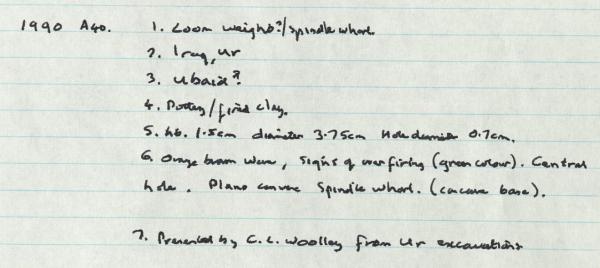 1990 A40. 1. Loom weight?/spindle whorl.
2. Iraq, Ur
3. Ubaid?
4. Pottery/fired clay.
5. ht. 1.5cm diameter 3.75cm Hole diameter 0.7cm.
6. Orange brown ware, signs of over firing (green colour). Central
hole. Plano convex spindle whorl. (concave base).
7. Presented by C.L. Woolley from Ur excavations